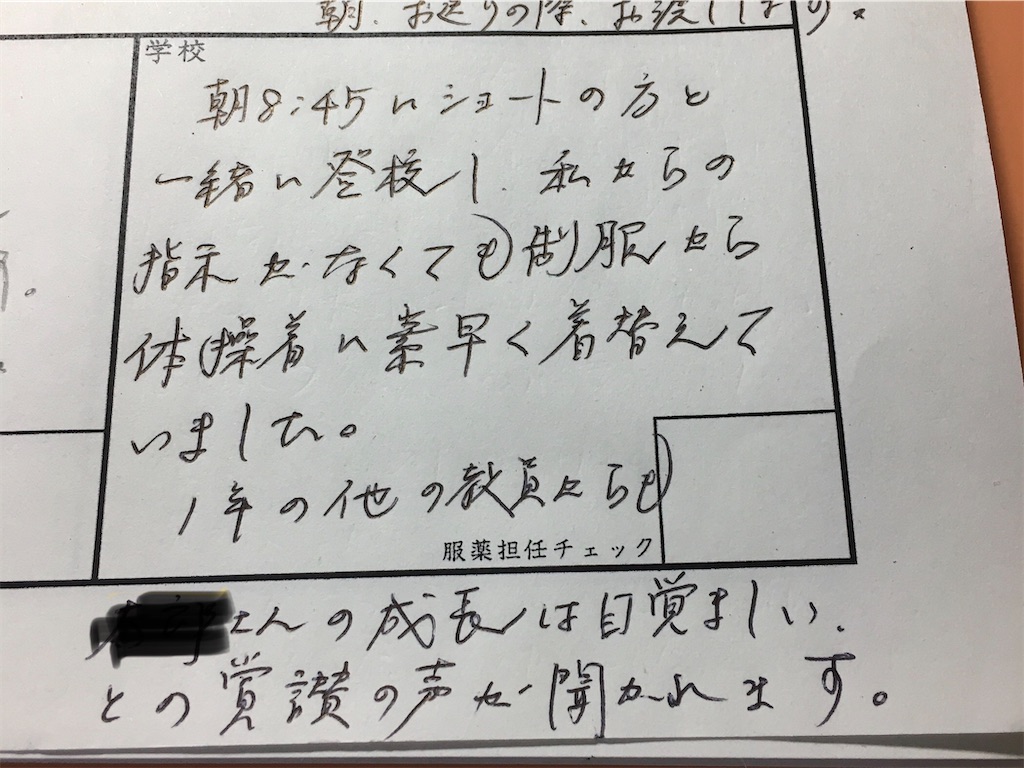 朝、お送りの際、お渡しします。
学校
朝8:45にショートの方と
一緒に登校し、私からの
指示がなくても制服から
体操着に素早く着替えて
いました。
1年の他の教員からも
服薬担任チェック
さんの成長は目覚ましい、
との賞讃の声が聞かれます。